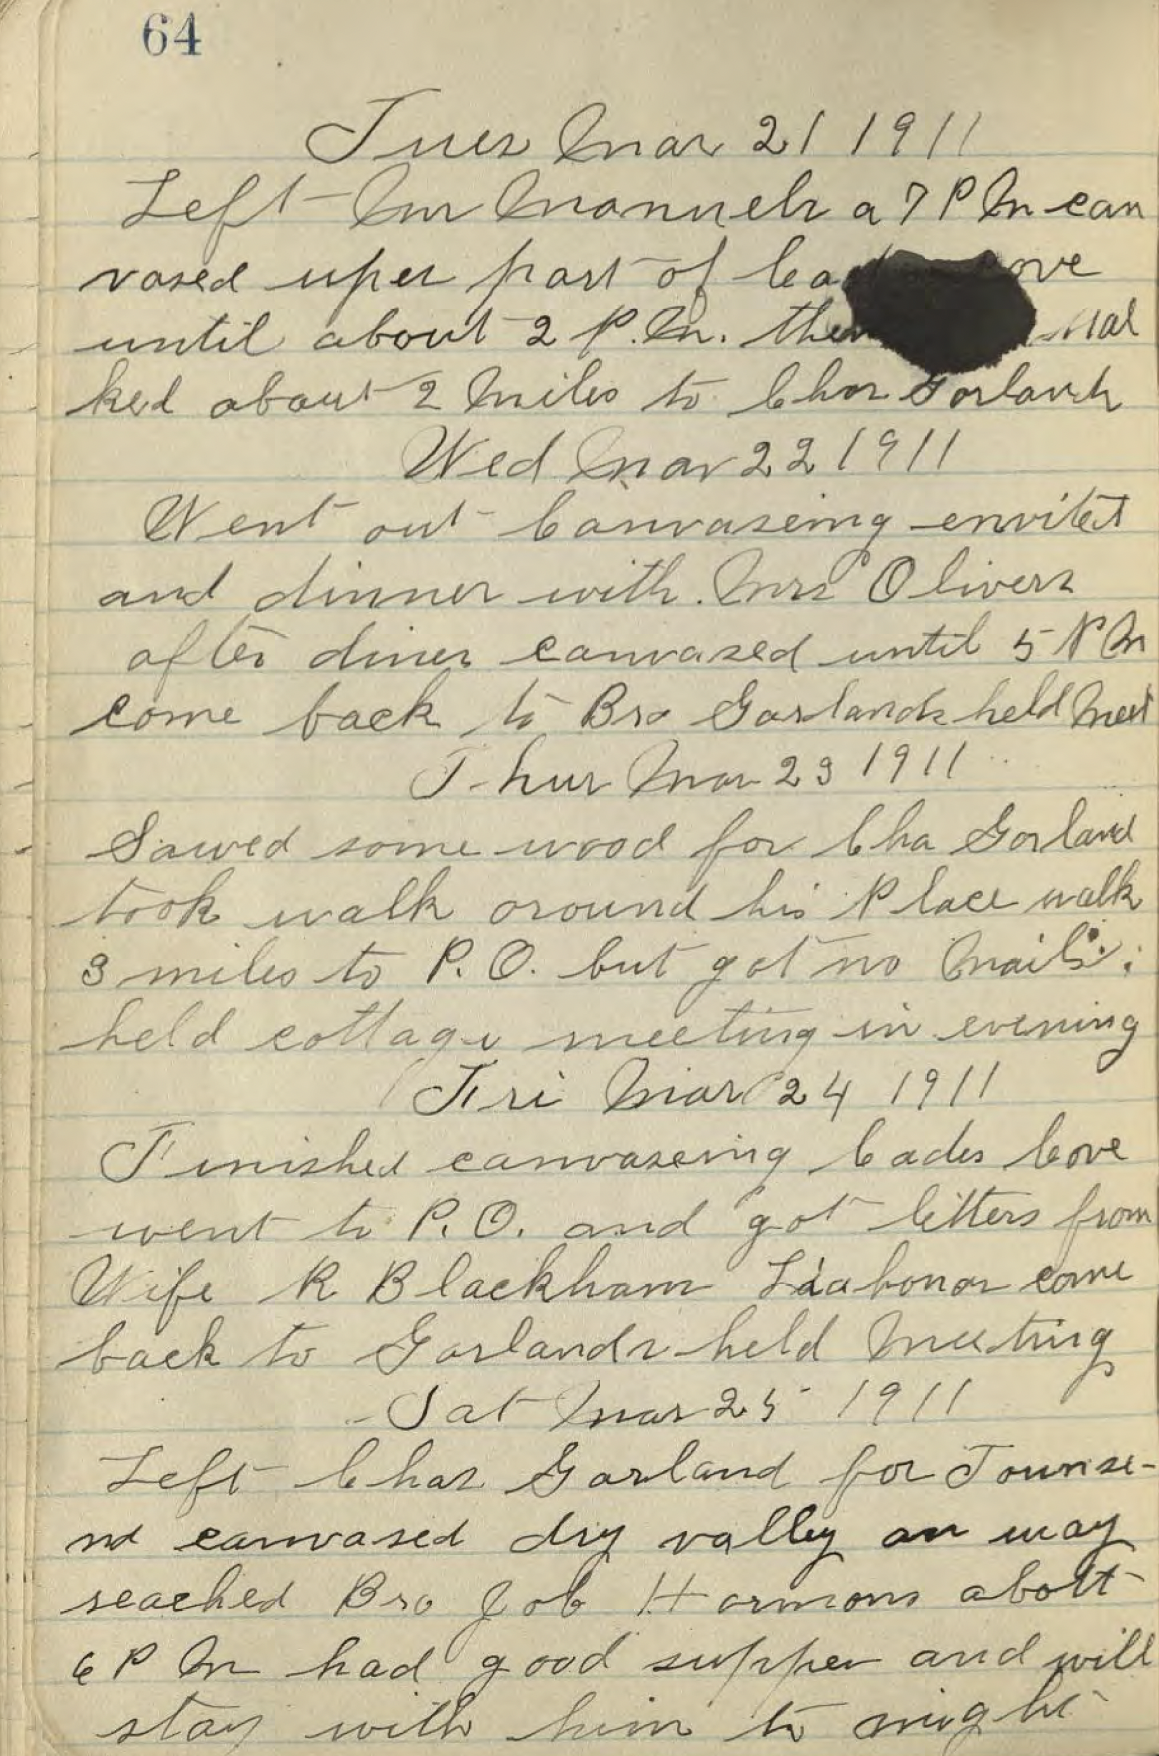 64
Tues Mar 21 1911
Left Wm Manuels a 7 P M can
vased uper part of Cades Cove
until about 2 P.M. then wal
ked about 2 Miles to Chas Garlands
Wed Mar 22 1911
Went out Canvaseing envited
and dinner with Mrs Olivers
after diner canvased until 5 P M
come back to Bro Garlands held Meet
Thur Mar 23 1911
Sawed some wood for Cha Garland
took walk around his Place walk
3 miles to P. O. but got no Mail
held cottage meeting in evening
Fri Mar 24 1911
Finished canvaseing Cades Cove
went to P. O. and got letters from
Wife R Blackham Liahonar come
back to Garlands held Meeting
Sat Mar 25 1911
Left Chas Garland for Townse-
nd canvased dry valley on way
reached Bro Job Harmons abott
6 P M had good supper and will
stay with him to night